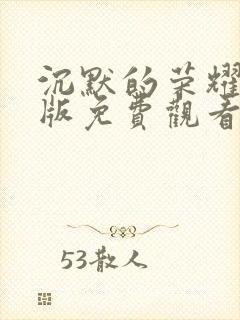 沉默的荣耀
版免費觀看
53散人